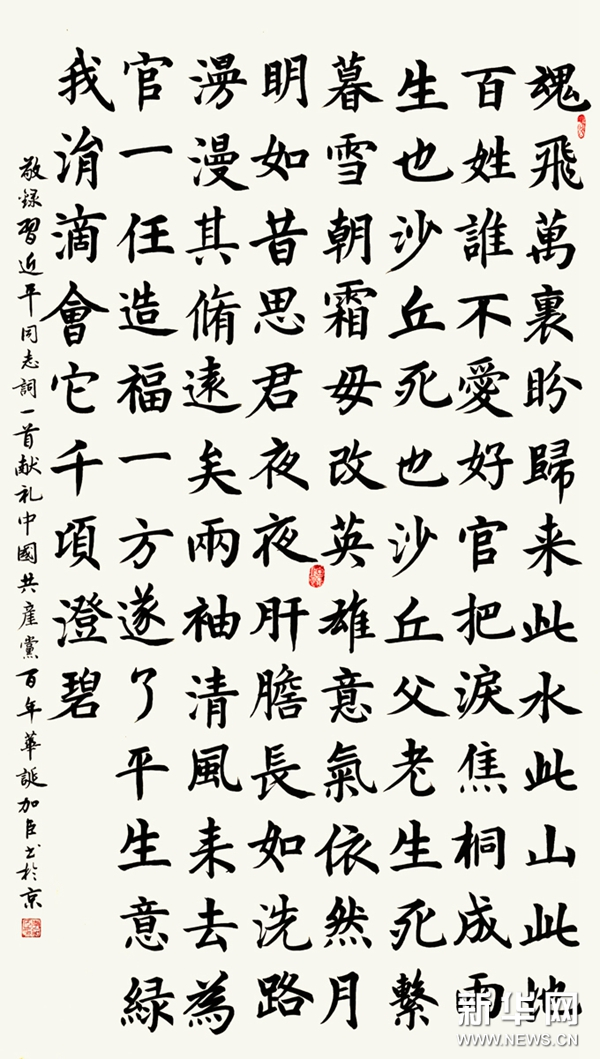 魂飛萬裏盼歸来此水此山此地
百姓誰不愛好官把淚焦桐成雨
生也沙丘死也沙丘父老生死繫
暮雪朝霜毋改英雄意氣依然月
明如昔思君夜夜肝膽長如洗路
澷漫其脩遠矣兩袖清風来去為
官一任造福一方遂了平生意緑
我涓滴會它千項澄碧
敬録習近平同志詞一首献礼中國共産黨百年華誕加臣书於京
新华网
WWW.NEWS.CN